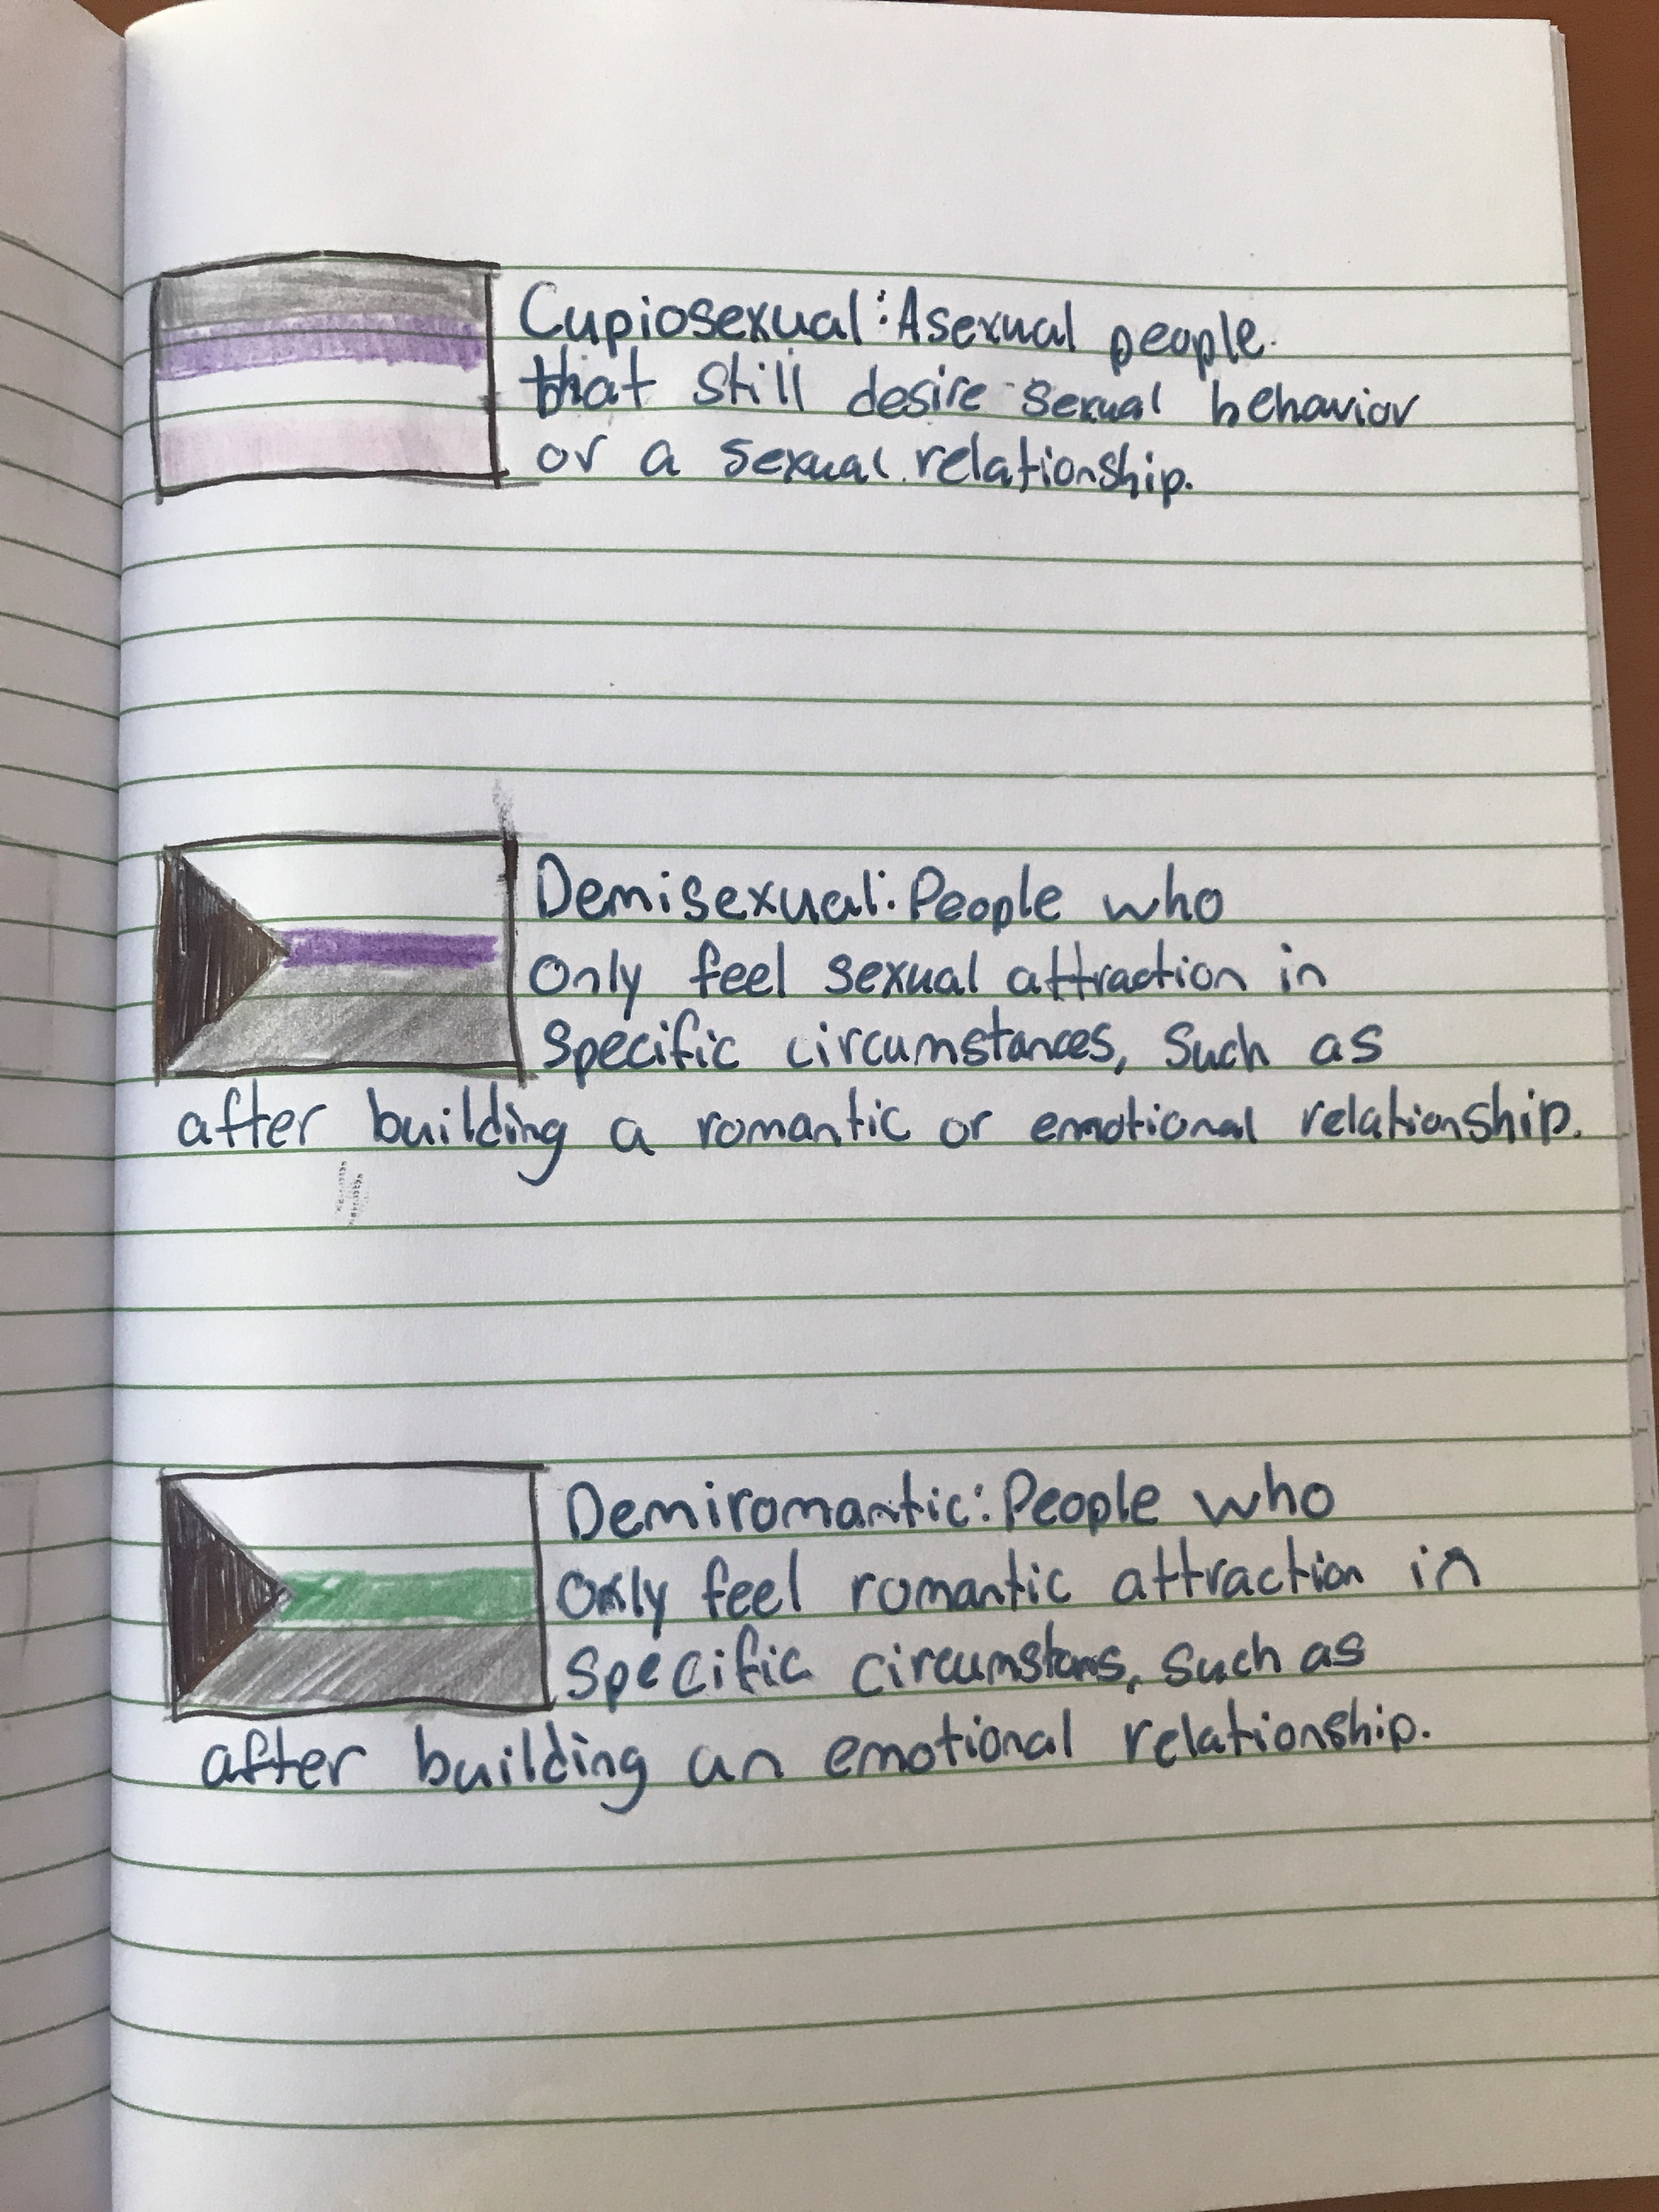 Cupiosexual: Asexual people
that still desire sexual behavior
or a sexual relationship.
Demisexual: People who
Only feel sexual attraction in
Specific circumstances, such as
after building a romantic or emotional relationship.
Demiromantic: People who
Only feel romantic attraction in
Specific circumstans, such as
after building an emotional relationship.